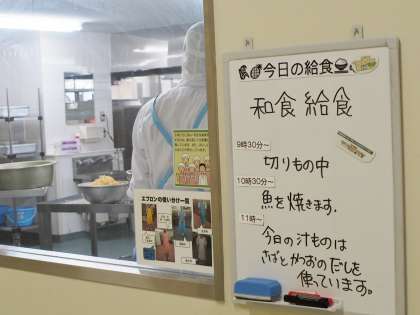 今日の給食
和食 給食
9時30分〜
切りもの中
10時30分〜
魚を焼きます.
11時〜
今日の汁ものは
さばとかつおのだしを
使っています。
エプロンの使い分け一覧